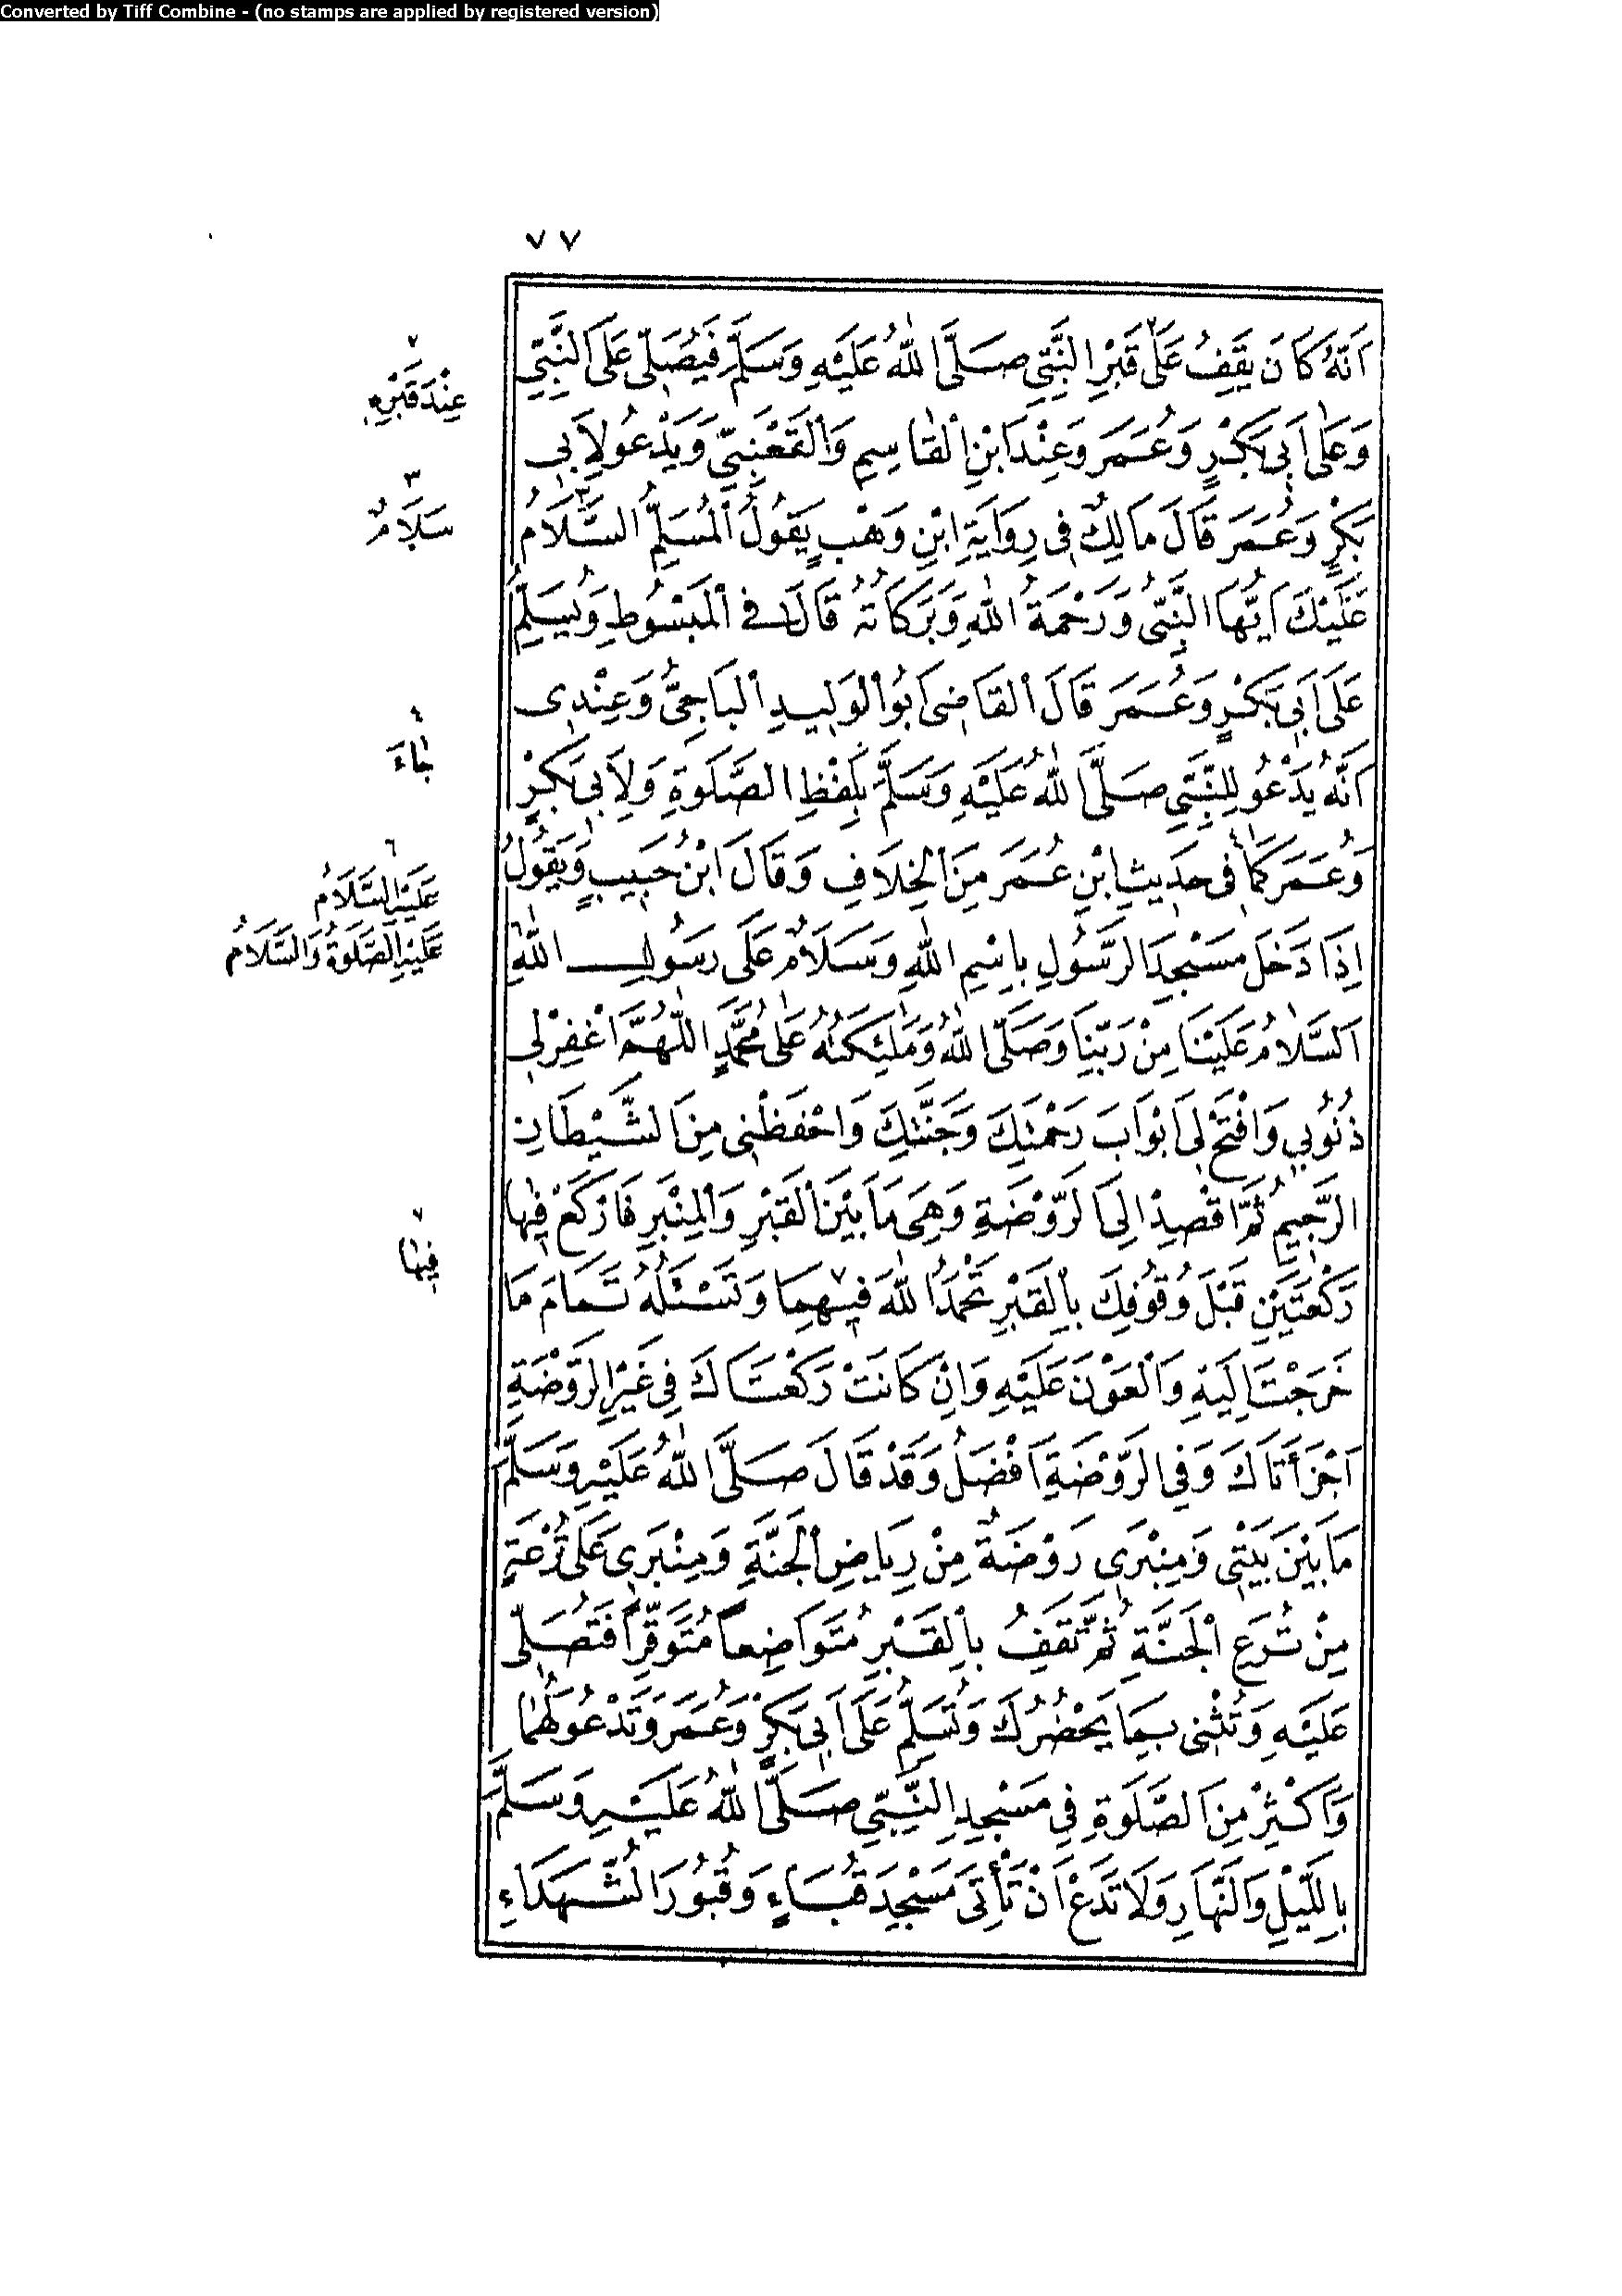 Converted by Tiff Combine - (no stamps are applied by registered version)
٧٧
اَنَّهُ كَانَ يَقِفُ عَلٰى قَبْرِ النَّبِيِّ صَلَّى اللهُ عَلَيْهِ وَسَلَّمَ فَيُصَلِّى عَلَى النَّبِيِّ
وَعَلٰى اَبِى بَكْرٍ وَعُمَرَ وَعِنْدَ ابْنِ الْقَاسِمِ وَالْقَعْنَبِيِّ وَيَدْعُو لِاَبِى
بَكْرٍ وَعُمَرَ قَالَ مَالِكٌ فِى رِوَايَةِ ابْنِ وَهْبٍ يَقُولُ الْمُسَلِّمُ السَّلَامُ
عَلَيْكَ اَيُّهَا النَّبِيُّ وَرَحْمَةُ اللهِ وَبَرَكَاتُهُ قَالَ فِى الْمَبْسُوطِ وَيُسَلِّمُ
عَلَى اَبِى بَكْرٍ وَعُمَرَ قَالَ الْقَاضِى اَبُو الْوَلِيدِ الْبَاجِيُّ وَعِنْدِى
اَنَّهُ يَدْعُو لِلنَّبِيِّ صَلَّى اللهُ عَلَيْهِ وَسَلَّمَ بِلَفْظِ الصَّلَوةِ وَلِاَبِى بَكْرٍ
وَعُمَرَ كَمَا فِى حَدِيثِ ابْنِ عُمَرَ مِنَ الْخِلَافِ وَقَالَ ابْنُ حَبِيبٍ وَيَقُولُ
اِذَا دَخَلَ مَسْجِدَ الرَّسُولِ بِاسْمِ اللهِ وَسَلَامٌ عَلَى رَسُولِ اللهِ
اَلسَّلَامُ عَلَيْنَا مِنْ رَبِّنَا وَصَلَّى اللهُ وَمَلٰئِكَتُهُ عَلٰى مُحَمَّدٍ اَللّٰهُمَّ اغْفِرْلِى
ذُنُوبِي وَافْتَحْ لِى اَبْوَابَ رَحْمَتِكَ وَجَنَّتِكَ وَاحْفَظْنِى مِنَ الشَّيْطَانِ
الرَّجِيمِ ثُمَّ اقْصِدْ اِلَى الرَّوْضَةِ وَهِىَ مَا بَيْنَ الْقَبْرِ وَالْمِنْبَرِ فَارْكَعْ فِيهَا
رَكْعَتَيْنِ قَبْلَ وُقُوفِكَ بِالْقَبْرِ تَحْمَدُ اللهَ فِيهِمَا وَتَسْئَلُهُ تَمَامَ مَا
خَرَجْتَ اِلَيْهِ وَالْعَوْنَ عَلَيْهِ وَاِنْ كَانَتْ رَكْعَتَاكَ فِى غَيْرِ الرَّوْضَةِ
اَجْزَأَتَاكَ وَفِى الرَّوْضَةِ اَفْضَلُ وَقَدْ قَالَ صَلَّى اللهُ عَلَيْهِ وَسَلَّمَ
مَا بَيْنَ بَيْتِى وَمِنْبَرِى رَوْضَةٌ مِنْ رِيَاضِ الْجَنَّةِ وَمِنْبَرِى عَلَى تُرْعَةٍ
مِنْ تُرَعِ الْجَنَّةِ ثُمَّ تَقِفُ بِالْقَبْرِ مُتَوَاضِعاً مُتَوَقِّراً فَتُصَلِّى
عَلَيْهِ وَتُثْنِى بِمَا يَحْضُرُكَ وَتُسَلِّمُ عَلَى اَبِى بَكْرٍ وَعُمَرَ وَتَدْعُو لَهُمَا
وَاَكْثِرْ مِنَ الصَّلَوةِ فِى مَسْجِدِ النَّبِيِّ صَلَّى اللهُ عَلَيْهِ وَسَلَّمَ
بِاللَّيْلِ وَالنَّهَارِ وَلَا تَدَعْ اَنْ تَأْتِىَ مَسْجِدَ قُبَاءٍ وَقُبُورَ الشُّهَدَاءِ
٢
عِنْدَ قَبْرِهِ
٣
سَلَامٌ
٤
٦
عَلَيْهِ السَّلَامُ
عَلَيْهِ الصَّلَوةُ وَالسَّلَامُ
٧
فِيهَا